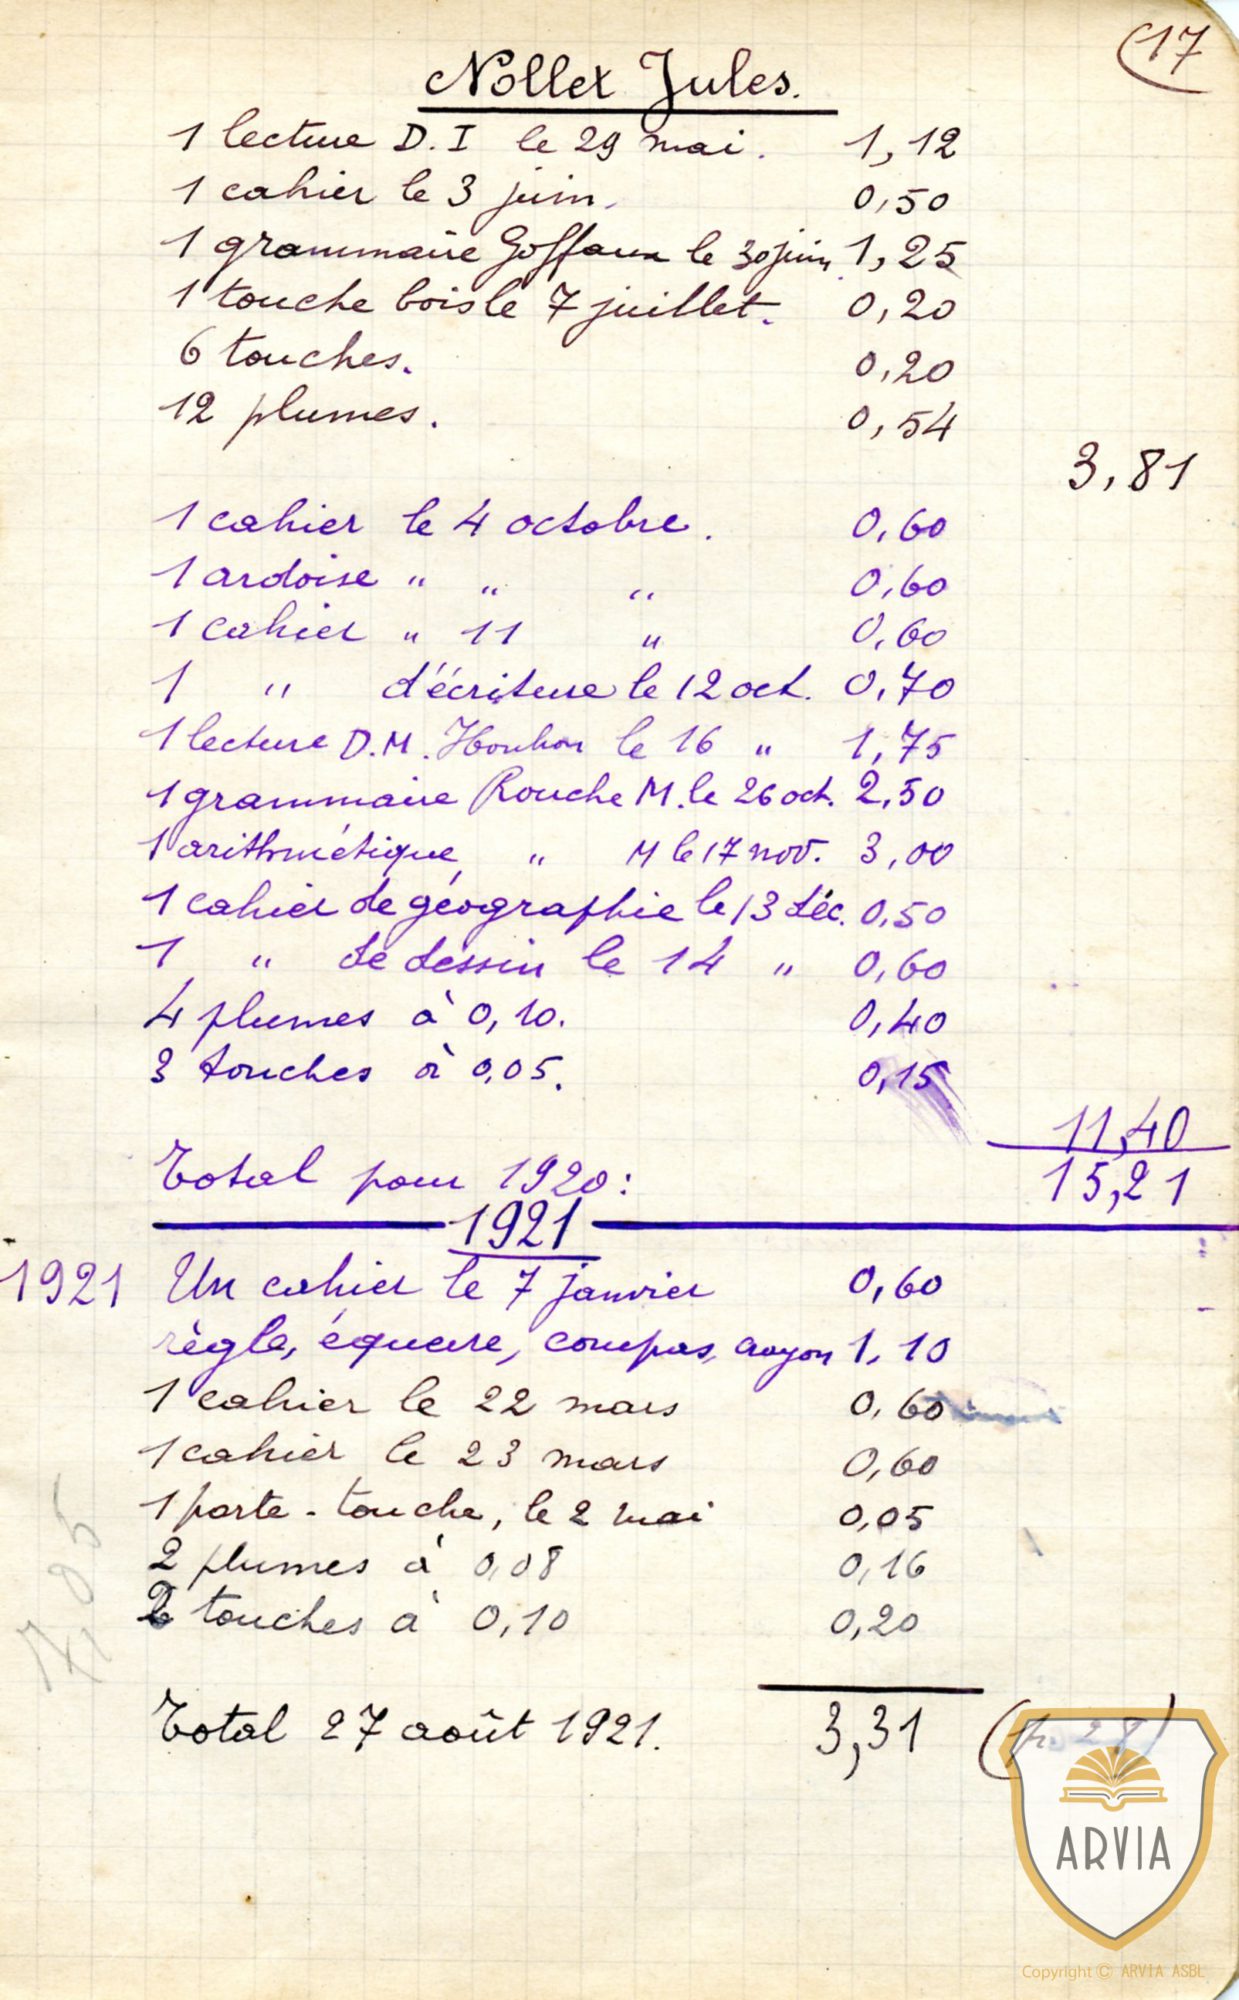 17
Nollet Jules.
1 lecture D.I le 29 mai. 1,12
1 cahier le 3 juin. 0,50
1 grammaire Goffaux le 30 juin 1,25
1 touche bois le 7 juillet. 0,20
6 touches. 0,20
12 plumes. 0,54
3,81
1 cahier le 4 octobre. 0,60
1 ardoise " " " 0,60
1 cahier " 11 " 0,60
1 " d'écriture le 12 oct. 0,70
1 lecture D.M. Houbon le 16 " 1,75
1 grammaire Rouche M. le 26 oct. 2,50
1 arithmétique " M le 17 nov. 3,00
1 cahier de géographie le 13 déc. 0,50
1 " de dessin le 14 " 0,60
4 plumes à 0,10. 0,40
3 touches à 0,05. 0,15
11,40
Total pour 1920: 15,21
1921
1921 Un cahier le 7 janvier 0,60
règle, équerre, compas, crayon 1,10
1 cahier le 22 mars 0,60
1 cahier le 23 mars 0,60
1 porte-touche, le 2 mai 0,05
2 plumes à 0,08 0,16
2 touches à 0,10 0,20
Total 27 août 1921. 3,31 (p. 28)
ARVIA
Copyright © ARVIA ASBL